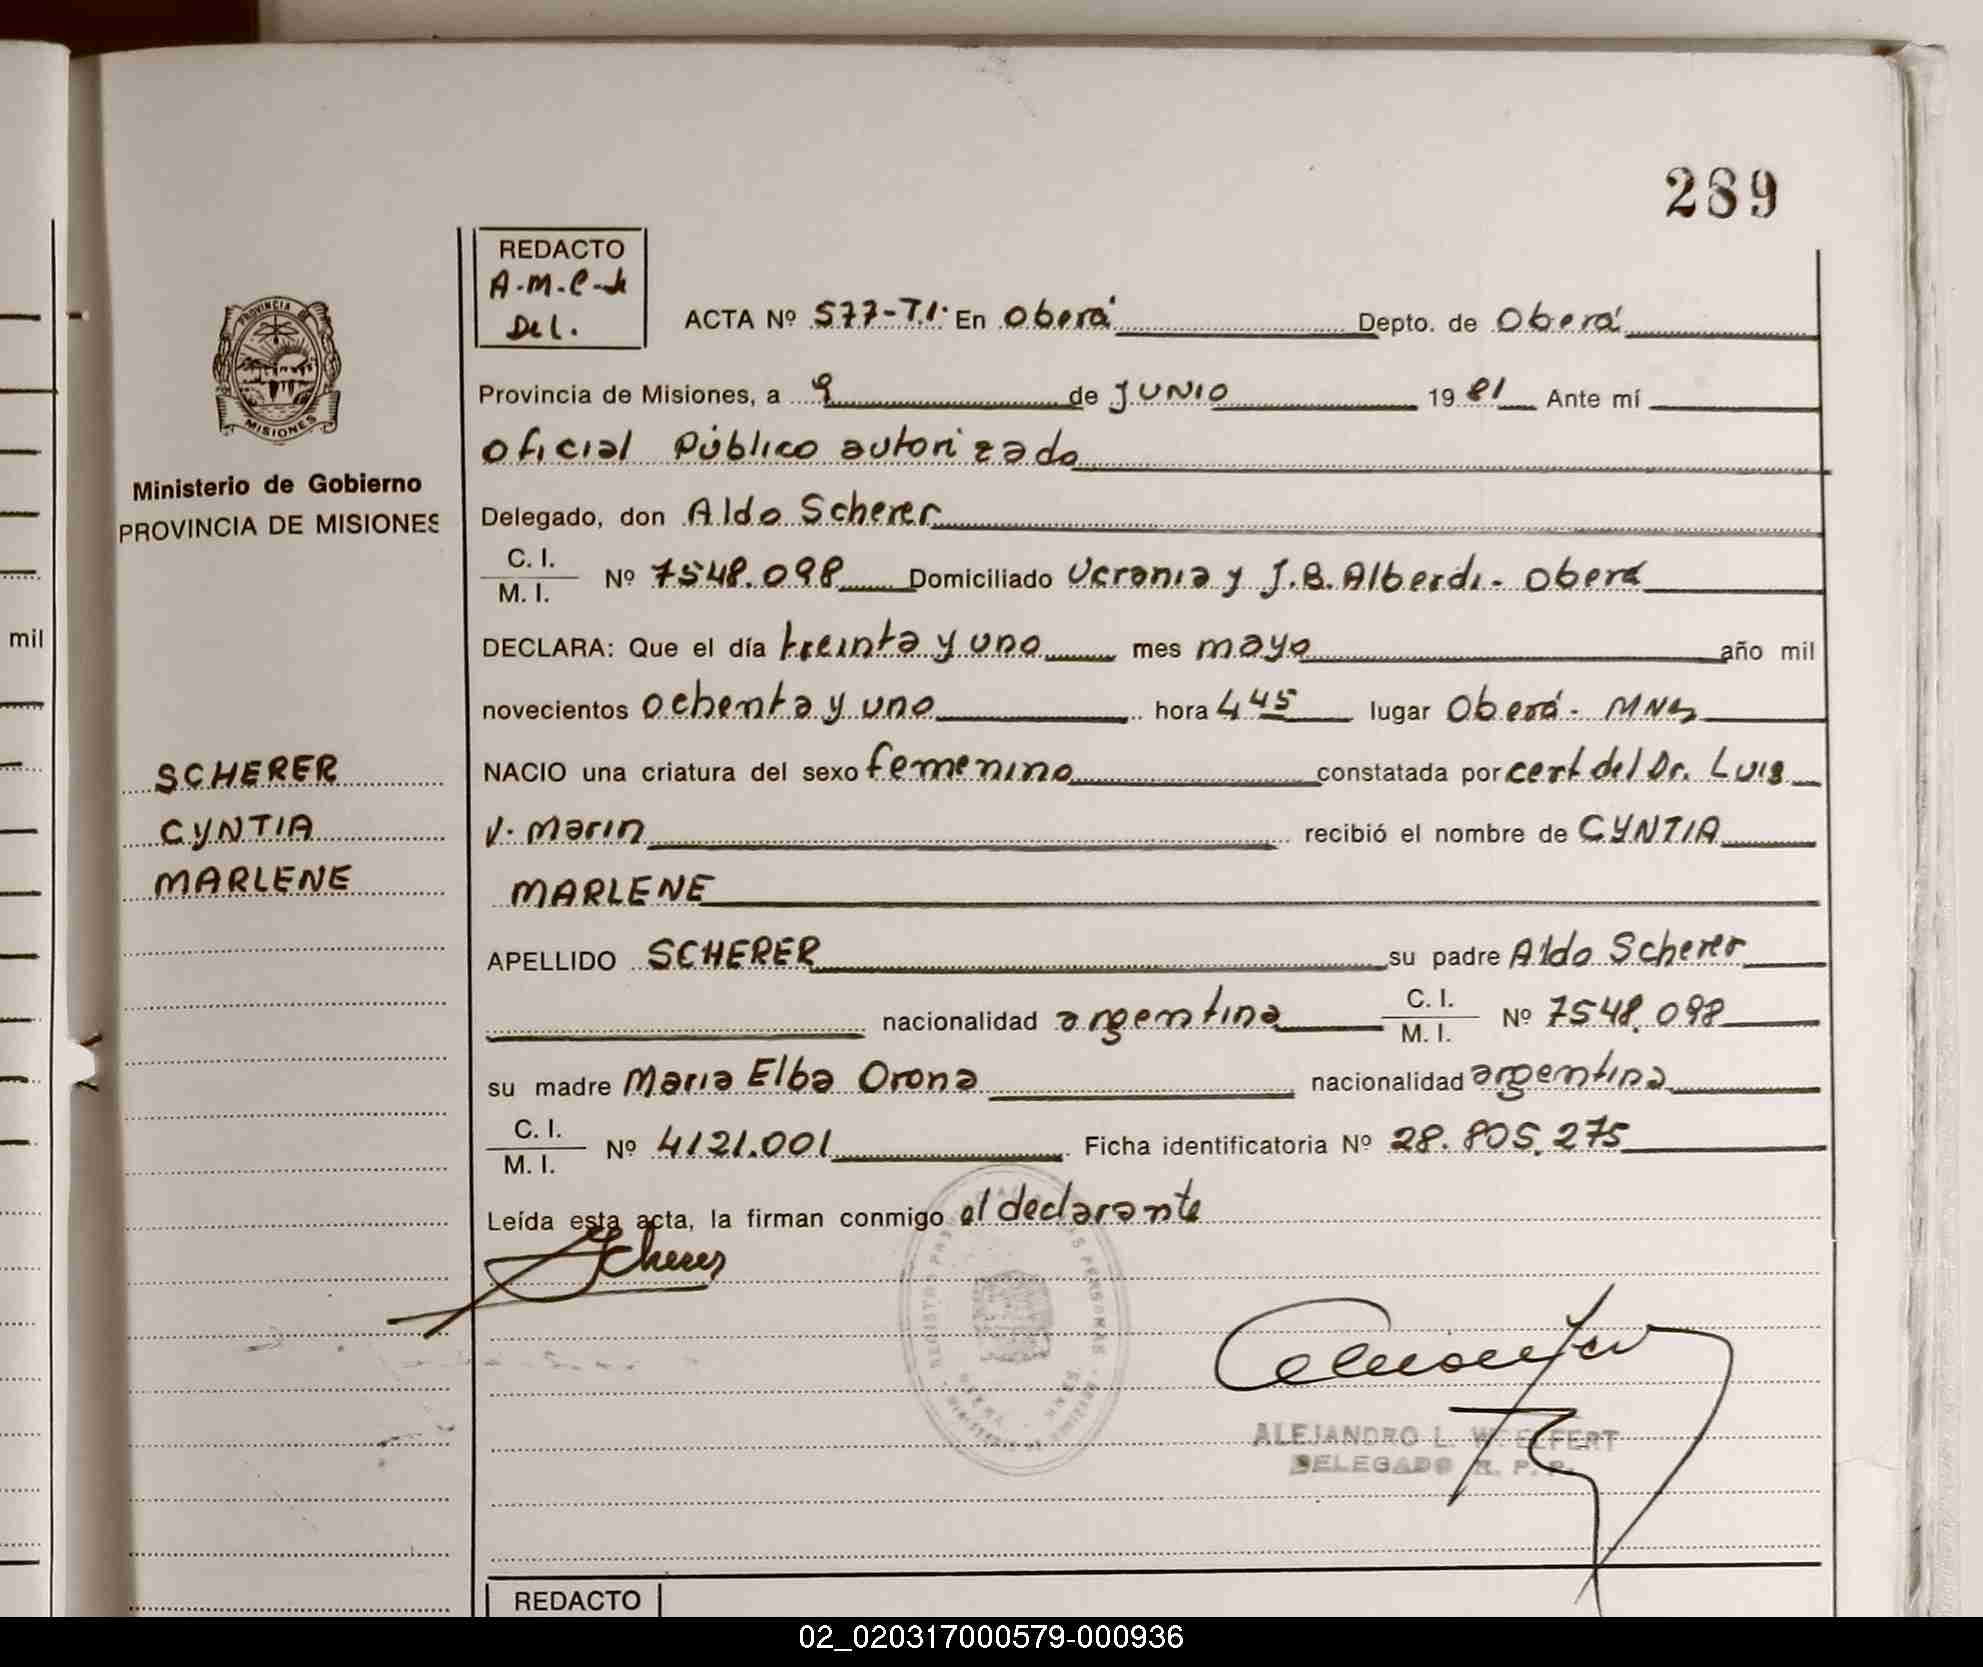 289
REDACTO
A.M.C. de
Del.
ACTA Nº 577-T.I. En Oberá Depto. de Oberá
Provincia de Misiones, a 9 de JUNIO 1981 Ante mí
oficial Público autorizado
Delegado, don Aldo Scherer
C. I.
M. I. Nº 7548.098 Domiciliado Ucrania y J.B. Alberdi - Oberá
DECLARA: Que el día treinta y uno mes mayo año mil
novecientos ochenta y uno hora 4 45 lugar Oberá - MNES
NACIO una criatura del sexo femenino constatada por cert del Dr. Luis
V. Marin recibió el nombre de CYNTIA
MARLENE
APELLIDO SCHERER su padre Aldo Scherer
nacionalidad argentina C. I. M. I. Nº 7548.098
su madre Maria Elba Orona nacionalidad argentina
C. I.
M. I. Nº 4121.001 Ficha identificatoria Nº 28.805.275
Leída esta acta, la firman conmigo el declarante
Scherer
ALEJANDRO L. WOELFERT
DELEGADO R. P. P.
REDACTO
PROVINCIA DE
MISIONES
Ministerio de Gobierno
PROVINCIA DE MISIONES
SCHERER
CYNTIA
MARLENE
mil
02_020317000579-000936